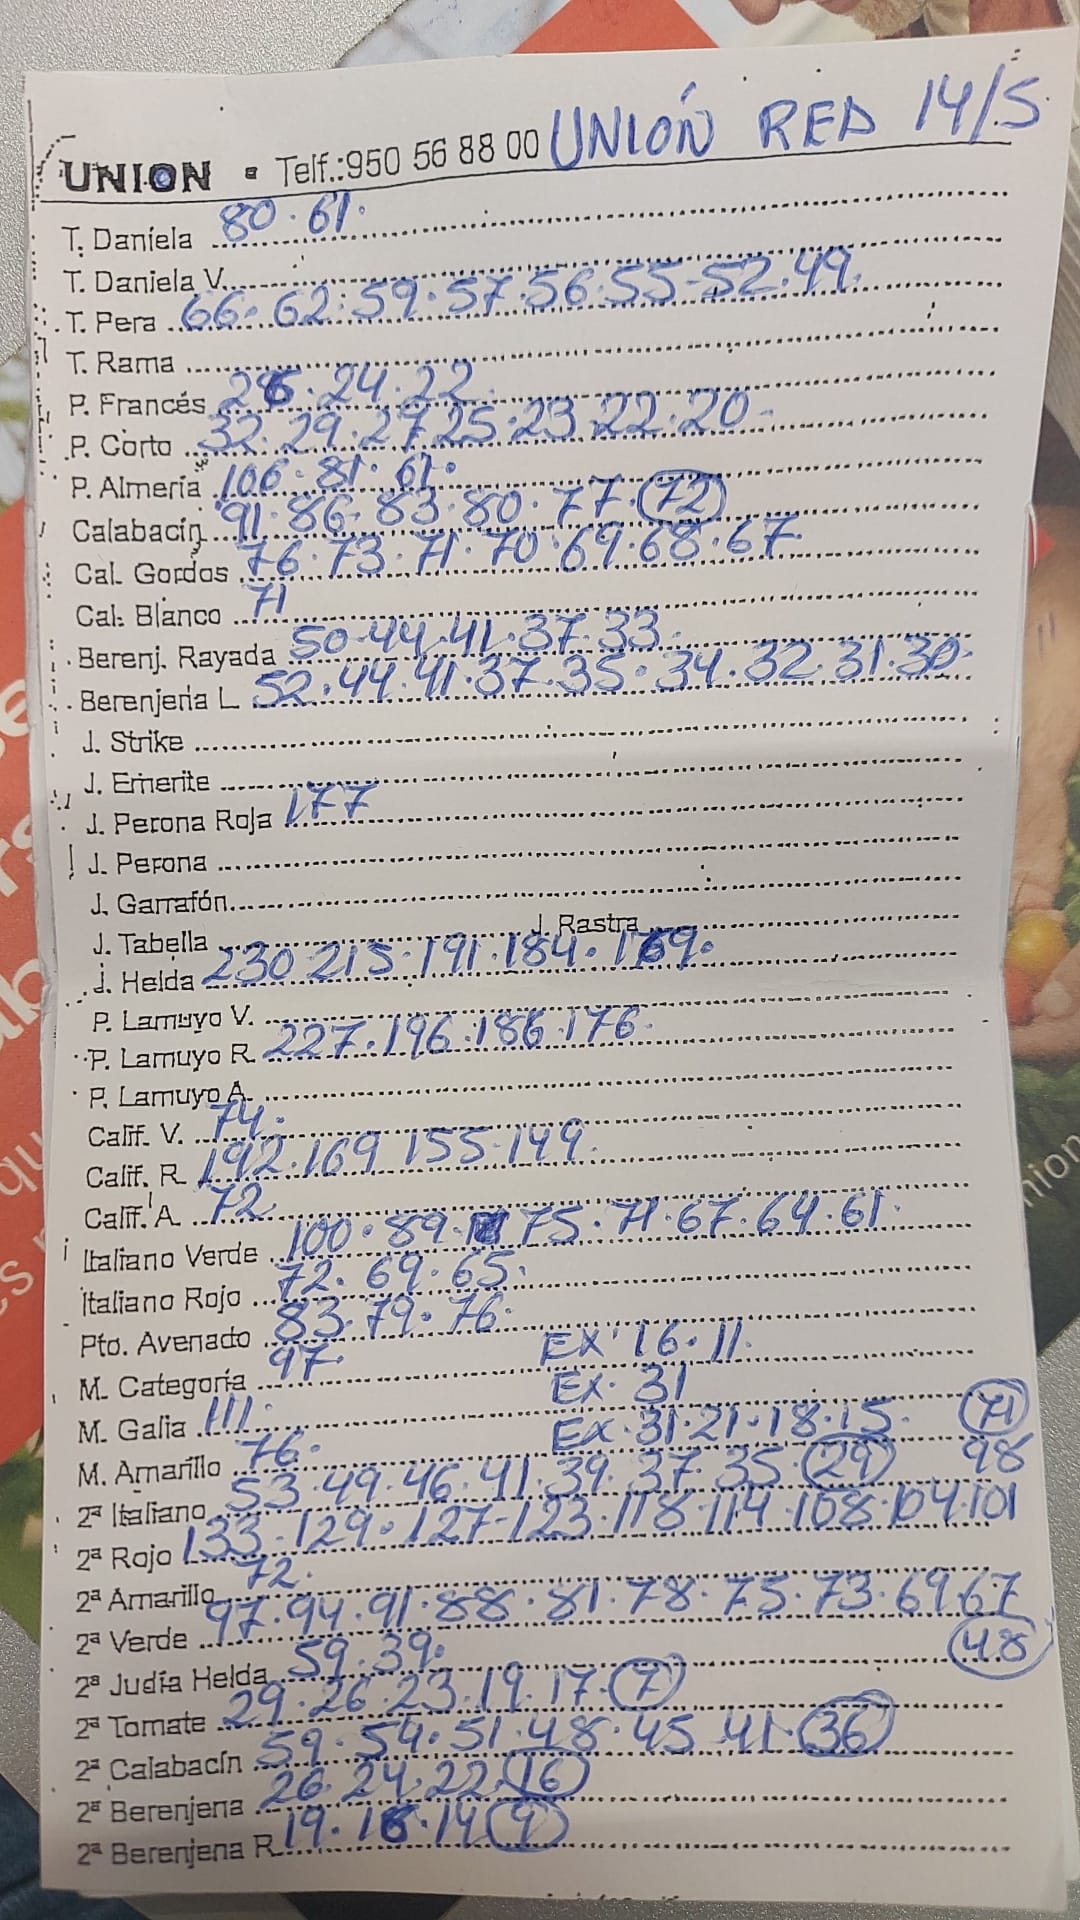 UNION • Telf.:950 56 88 00 UNIÓN RED 14/5
T. Daniela 80. 61.
T. Daniela V.
T. Pera 66. 62. 59. 57. 56. 55-52. 49.
T. Rama
P. Francés 26. 24. 22
P. Corto 32. 29. 27 25. 23 22. 20-
P. Almería 106. 81. 61.
Calabacín 91. 86. 83. 80. 77. 72
Cal. Gordos 76. 73. 71. 70. 69. 68. 67
Cal. Blanco 71
Berenj. Rayada 50-44. 41. 37. 33.
Berenjena L 52. 44. 41. 37. 35. 34. 32. 31. 30.
J. Strike
J. Emerite
J. Perona Roja 177
J. Perona
J. Garrafón
J. Tabella J. Rastra
J. Helda 230 215. 191. 184. 169.
P. Lamuyo V.
P. Lamuyo R. 227. 196. 186 176.
P. Lamuyo A.
Calif. V. 74.
Calif. R. 192. 169 155-149.
Calif. A. 72
Italiano Verde 100. 89. 75. 71. 67. 64. 61.
Italiano Rojo 72. 69. 65.
Pto. Avenado 83. 79. 76.
M. Categoría 97. EX. 16. 11.
M. Galia 111. EX. 31
M. Amarillo 76. EX. 31. 21. 18. 15. 71
2ª Italiano 53. 49. 46. 41. 39. 37. 35. 29 98
2ª Rojo 133-129. 127-123. 118-114. 108. 104. 101
2ª Amarillo 72.
2ª Verde 97. 94. 91. 88. 81. 78. 75. 73. 69 67
2ª Judía Helda 59. 39. 48
2ª Tomate 29. 26. 23. 19. 17. 7
2ª Calabacín 59. 54. 51. 48. 45 41. 36
2ª Berenjena 26. 24. 22. 16
2ª Berenjena R. 19. 16. 14 9